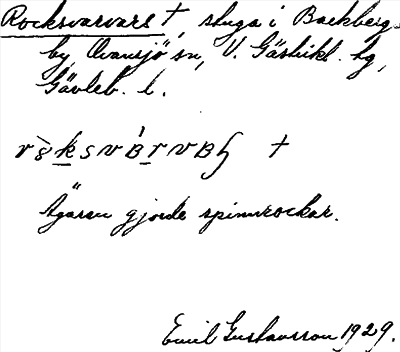 Rocksvarvars †, stuga i Backberg
by, Ovansjö sn, V. Gästrikl. hg,
Gävleb. l.
†
Ägaren gjorde spinnrockar.
Emil Gustavsson 1929.